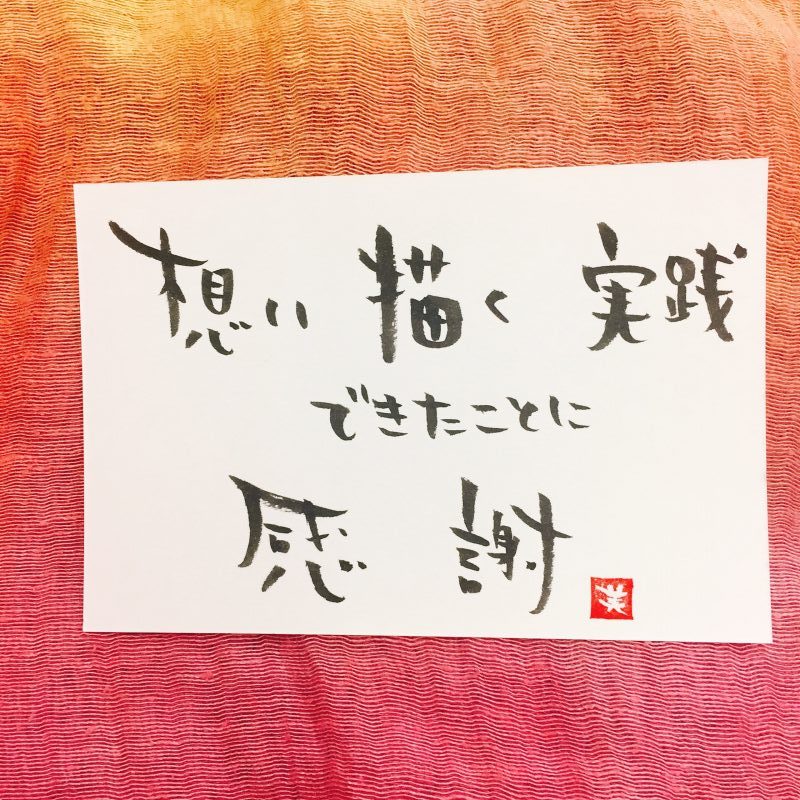 想い 描く 実践
できたことに
感 謝
笑